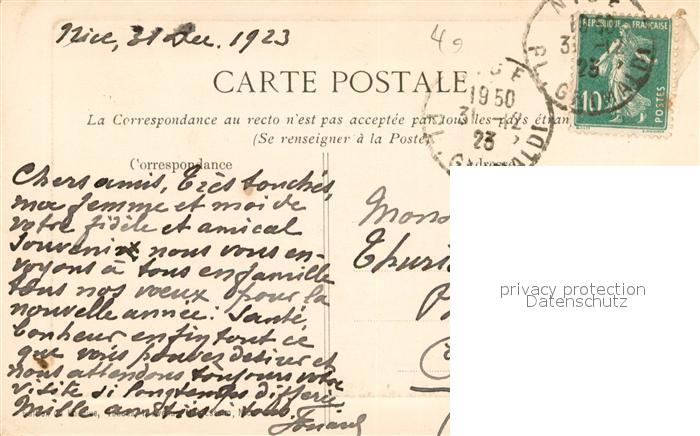 Nice, 31 Dec. 1923
49
CARTE POSTALE
La Correspondance au recto n'est pas acceptée par tous les pays étran
(Se renseigner à la Poste
Correspondance
Adresse
Chers amis, Très touchés,
ma femme et moi de
votre fidèle et amical
souvenir nous vous en-
voyons à tous en famille
tous nos vœux pour la
nouvelle année: Santé,
bonheur enfin tout ce
que vous pouvez desirer et
nous attendons toujours votre
visite si longtemps différée.
Mille amitiés à tous.
Mons
Thuri
NICE
1950
31 -12
23
PL. GARIBALDI
NICE
PL. GARIBALDI
REPUBLIQUE FRANÇAISE
10
POSTES
privacy protection
Datenschutz